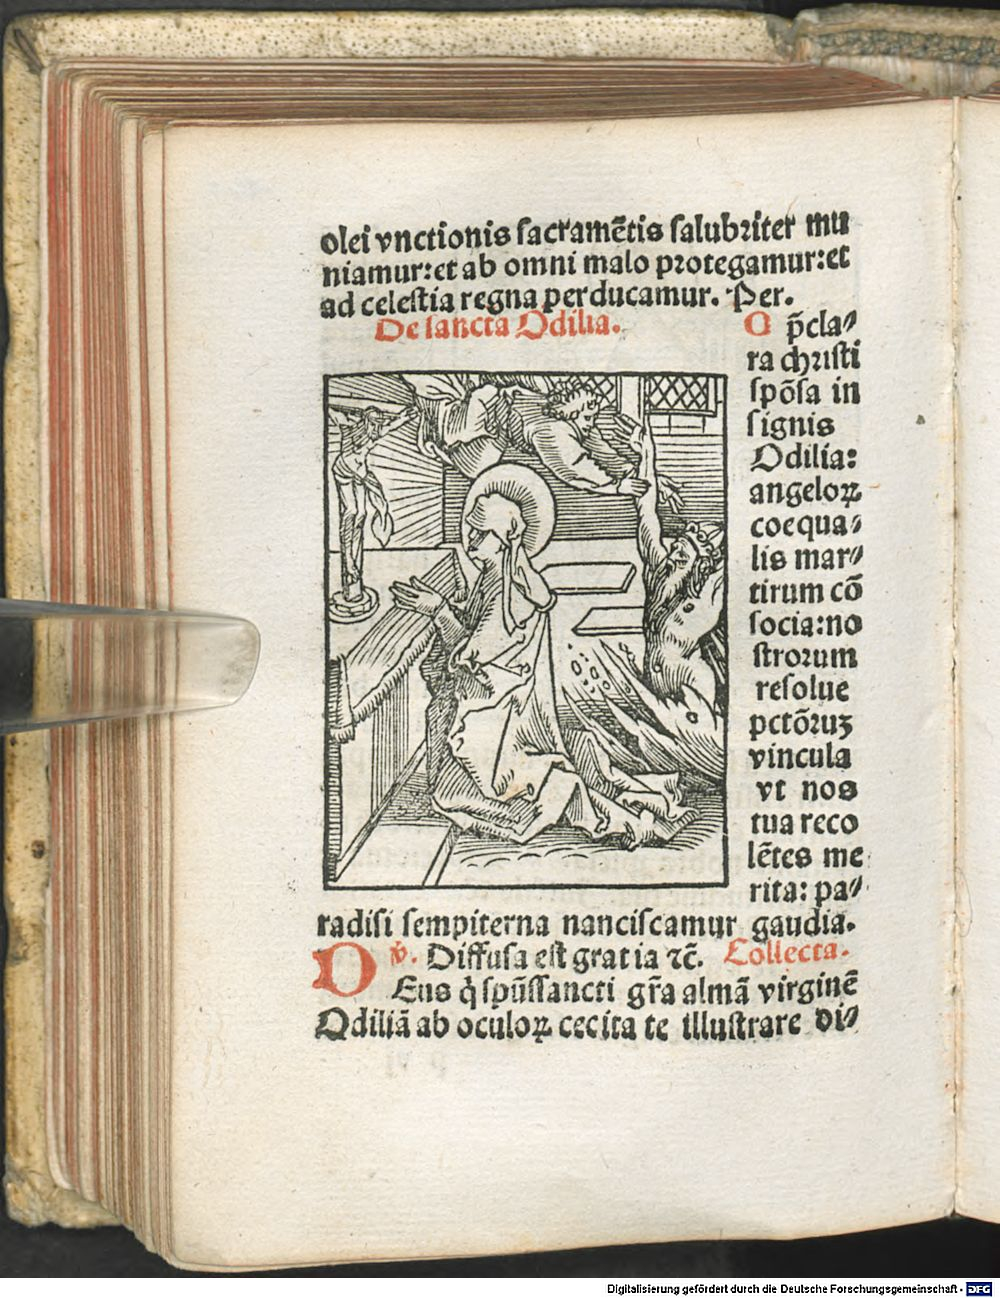 olei vnctionis sacramētis salubriter mu
niamur: et ab omni malo protegamur: et
ad celestia regna perducamur. Per.
De sancta Odilia.
O p̄cla⸗
ra christi
spōsa in
signis
Odilia:
angeloꝝ
coequa⸗
lis mar⸗
tirum cō
socia: no
strorum
resolue
pctōruꝫ
vincula
vt nos
tua reco
lētes me
rita: pa⸗
radisi sempiterna nanciscamur gaudia.
v̄. Diffusa est gratia ⁊c̄. Collecta.
DEus q̇ spūssancti gr̄a almā virginē
Odiliā ab oculoꝝ cecitate illustrare di⸗
Digitalisierung gefördert durch die Deutsche Forschungsgemeinschaft - DFG